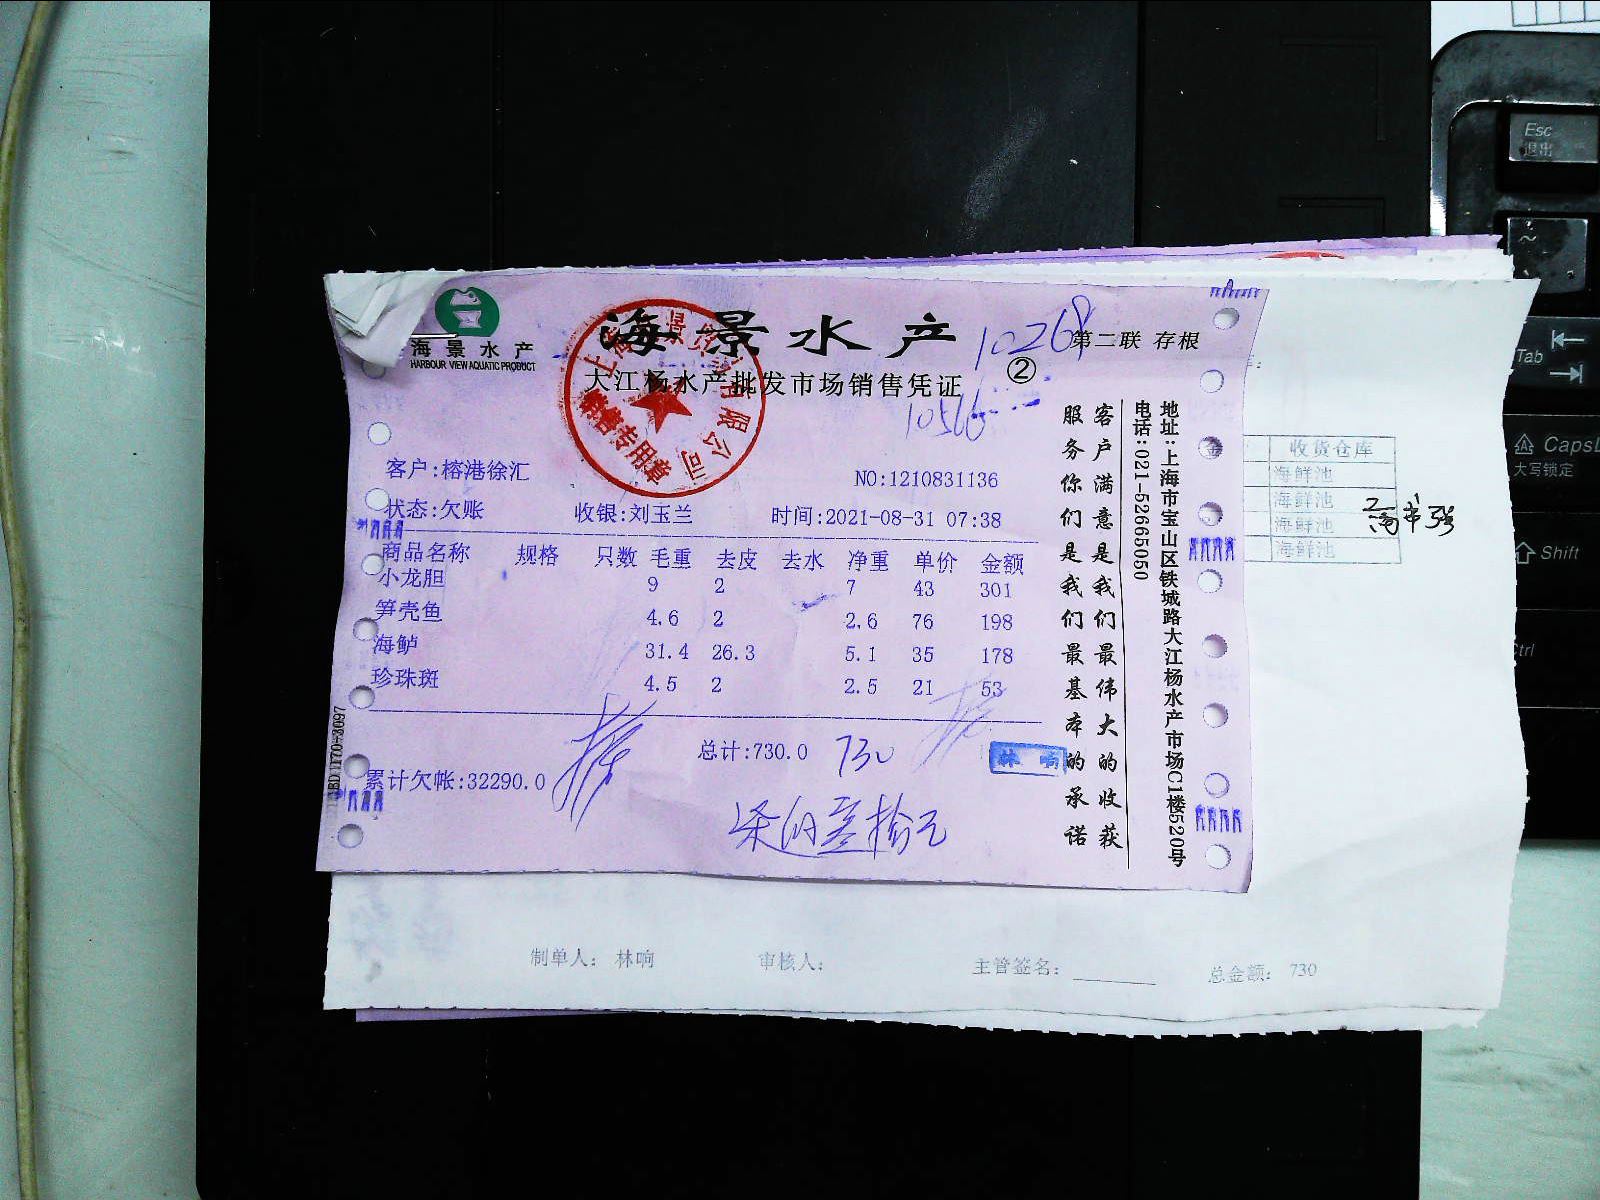 海景水产
HARBOUR VIEW AQUATIC PRODUCT
海景水产
第二联 存根
10268
大江杨水产批发市场销售凭证
②
10516
销售专用章
有限公司
客户:榕港徐汇
NO:1210831136
状态:欠账 收银:刘玉兰 时间:2021-08-31 07:38
商品名称 规格 只数 毛重 去皮 去水 净重 单价 金额
小龙胆 9 2 7 43 301
笋壳鱼 4.6 2 2.6 76 198
海鲈 31.4 26.3 5.1 35 178
珍珠斑 4.5 2 2.5 21 53
总计:730.0 730
林响
累计欠帐:32290.0
柒佰叁拾元
客户满意是我们最伟大的收获
服务你们是我们最基本的承诺
地址:上海市宝山区铁城路大江杨水产市场C1楼520号
电话:021-52665050
收货仓库
海鲜池
海鲜池
海鲜池
海鲜池
制单人: 林响 审核人: 主管签名: 总金额: 730
Esc
退出
~
Tab
CapsL
大写锁定
Shift
Ctrl